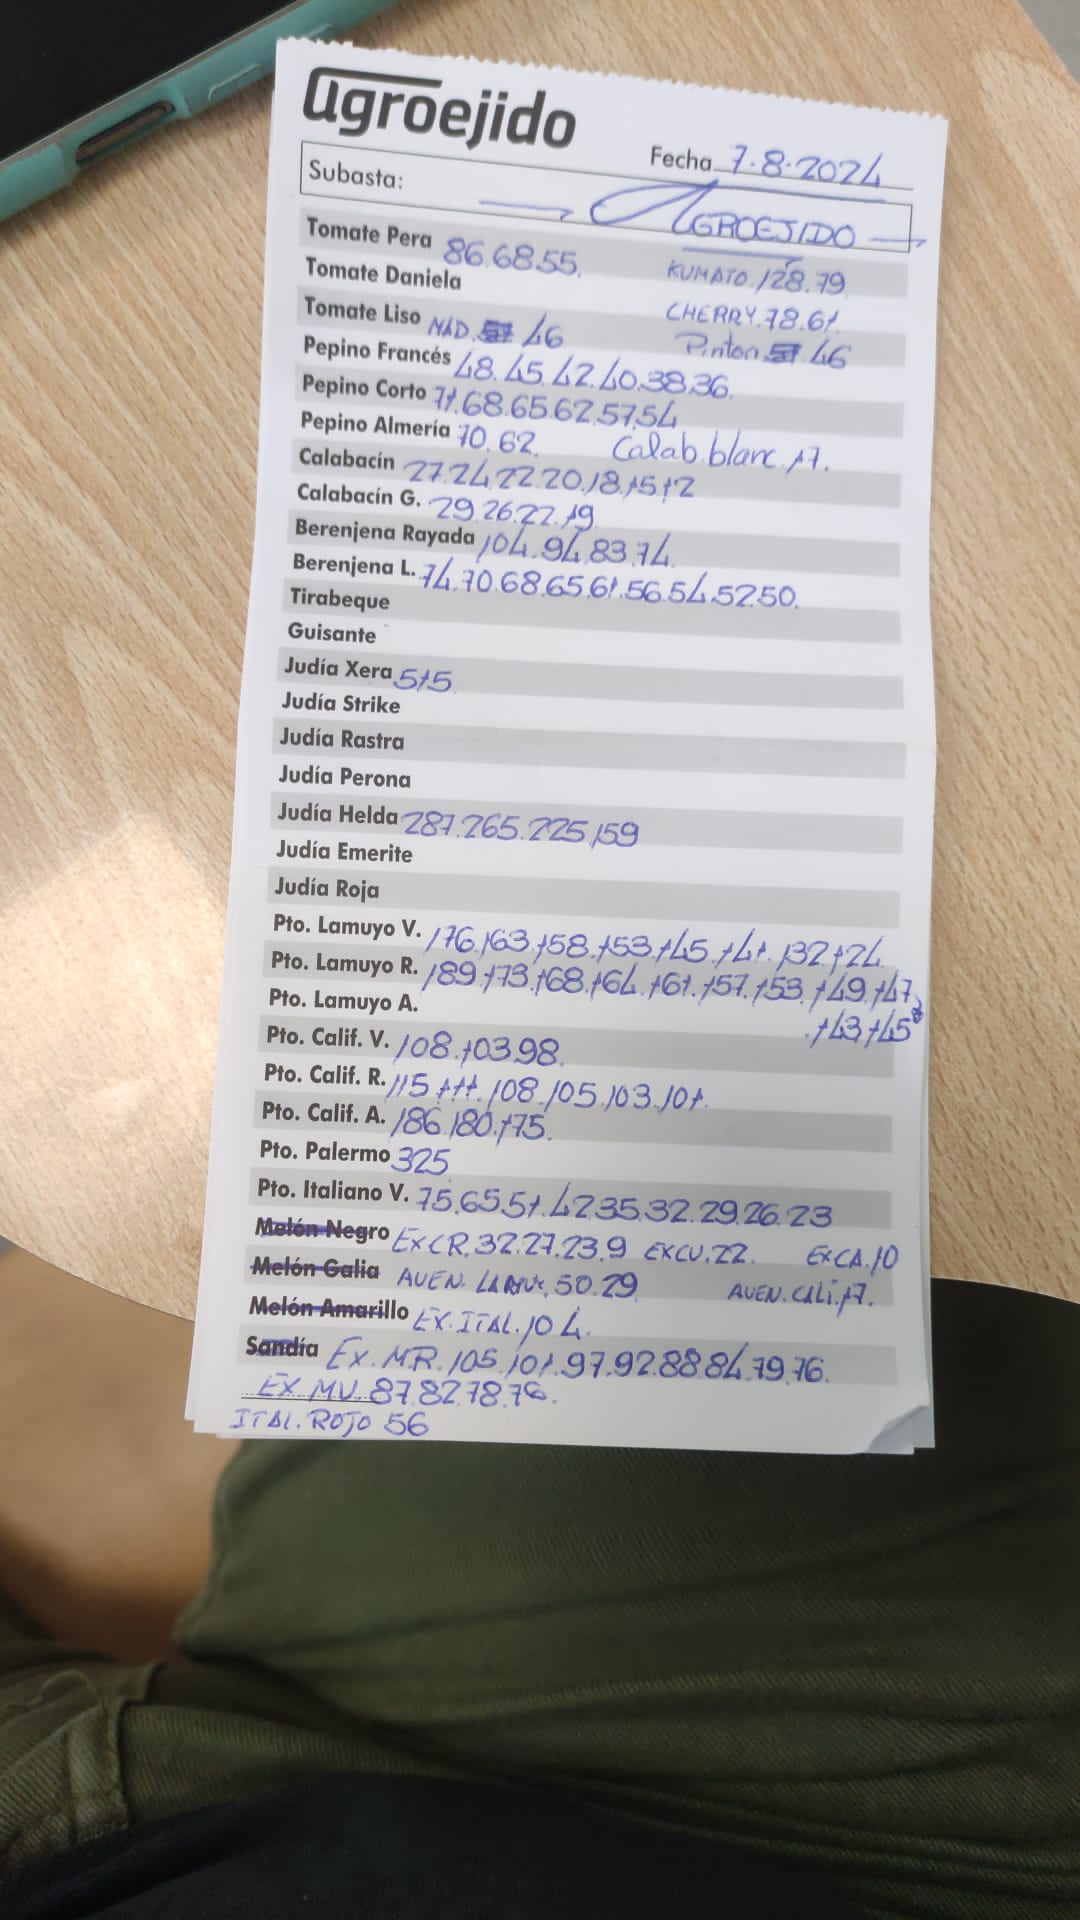 agroejido
Fecha 7.8.2024
Subasta: AGROEJIDO
Tomate Pera 86.68.55. KUMATO.128.79
Tomate Daniela CHERRY.78.61.
Tomate Liso MAD. 46 Pinton 46
Pepino Francés 48.45.42.40.38.36.
Pepino Corto 71.68.65.62.57.54
Pepino Almería 70.62. Calab.blanc.17.
Calabacín 27.24.22.20.18.15.12
Calabacín G. 29.26.22.19
Berenjena Rayada 104.94.83.74.
Berenjena L. 74.70.68.65.61.56.54.52.50.
Tirabeque
Guisante
Judía Xera 515
Judía Strike
Judía Rastra
Judía Perona
Judía Helda 287.265.225.159
Judía Emerite
Judía Roja
Pto. Lamuyo V. 176.163.158.153.145.141.132.124
Pto. Lamuyo R. 189.173.168.164.161.157.153.149.147
Pto. Lamuyo A. .143.145
Pto. Calif. V. 108.103.98.
Pto. Calif. R. 115.111.108.105.103.101.
Pto. Calif. A. 186.180.175.
Pto. Palermo 325
Pto. Italiano V. 75.65.51.42.35.32.29.26.23
Melón Negro EXCR.32.27.23.9 EXCV.22. EXCA.10
Melón Galia AVEN. LAMUY.50.29 AVEN.CALI.17.
Melón Amarillo EX.ITAL.10 4.
Sandía EX.MR.105.101.97.92.88.84.79.76.
EX MV.87.82.78.76.
ITAL.ROJO 56